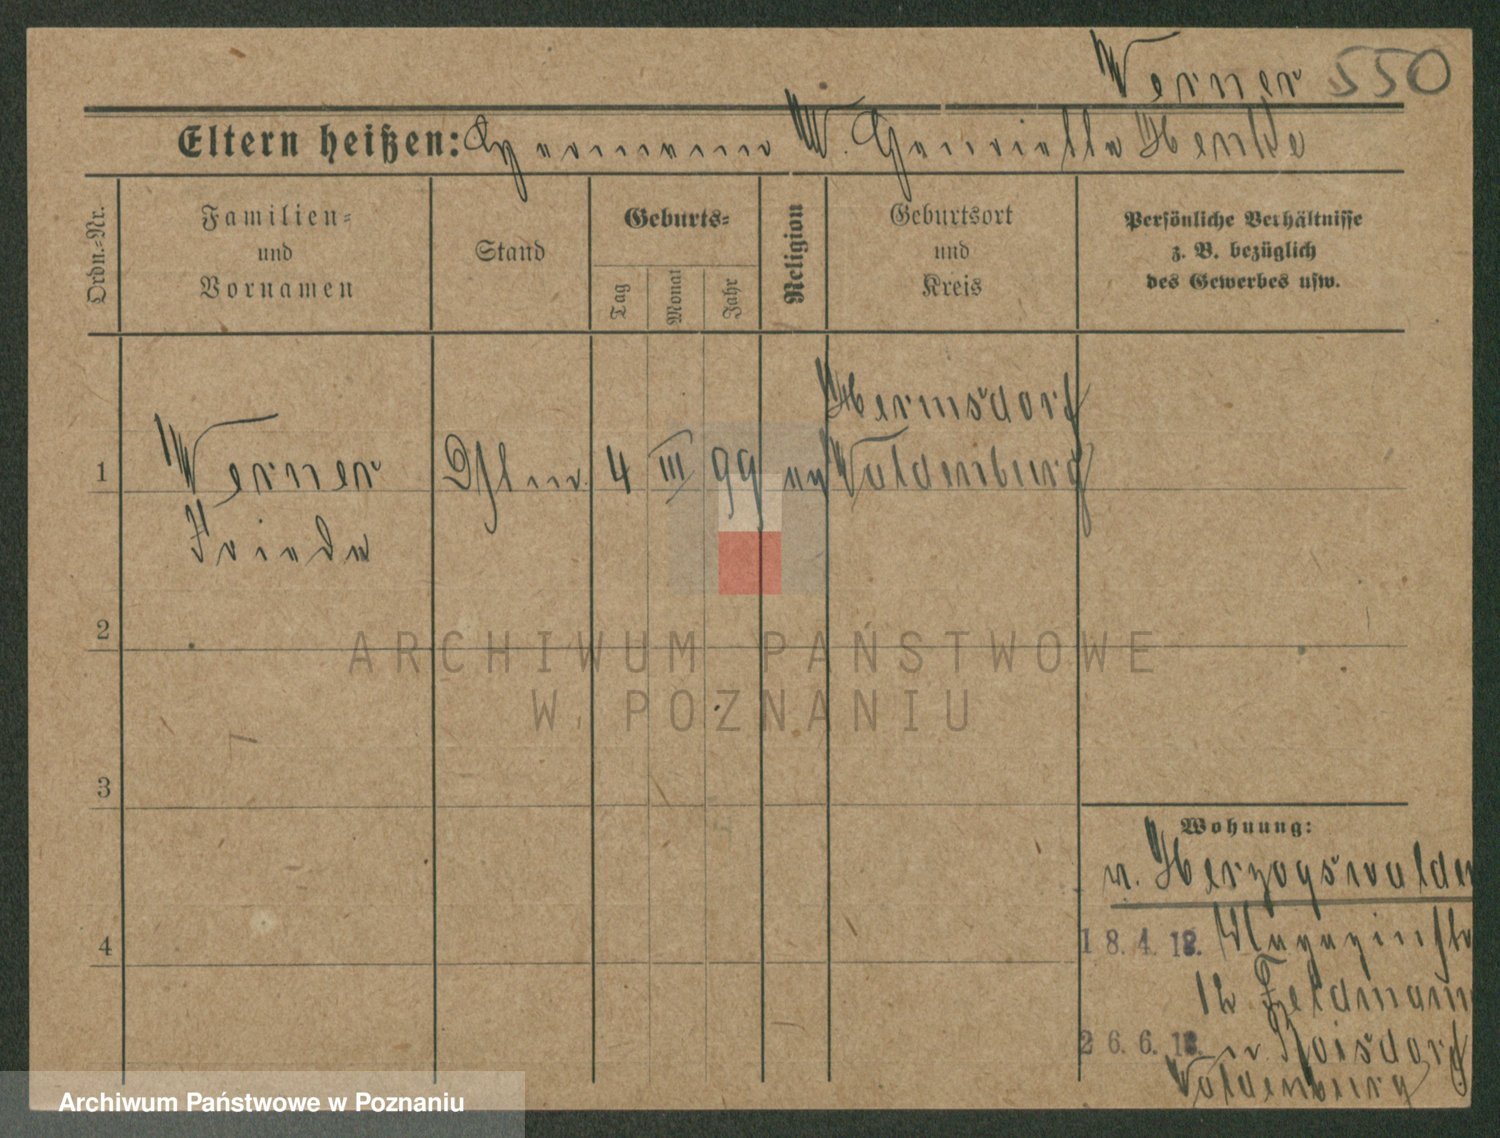 Werner 550
Eltern heißen: Hermann W. Henriette Henke
Ordn.=Nr.
Familien=
und
Vornamen
Stand
Geburts=
Tag
Monat
Jahr
Religion
Geburtsort
und
Kreis
Persönliche Verhältnisse
z. B. bezüglich
des Gewerbes usw.
Hermsdorf
1 Werner 4 III 99 ev Waldenburg
Frieda
2
ARCHIWUM PAŃSTWOWE
W POZNANIU
3
Wohnung:
v. Herzogswalde
4
18. 4. 18. Magazinstr
12 Feldmann
26. 6. 18. n. Roisdorf
Waldenburg
Archiwum Państwowe w Poznaniu